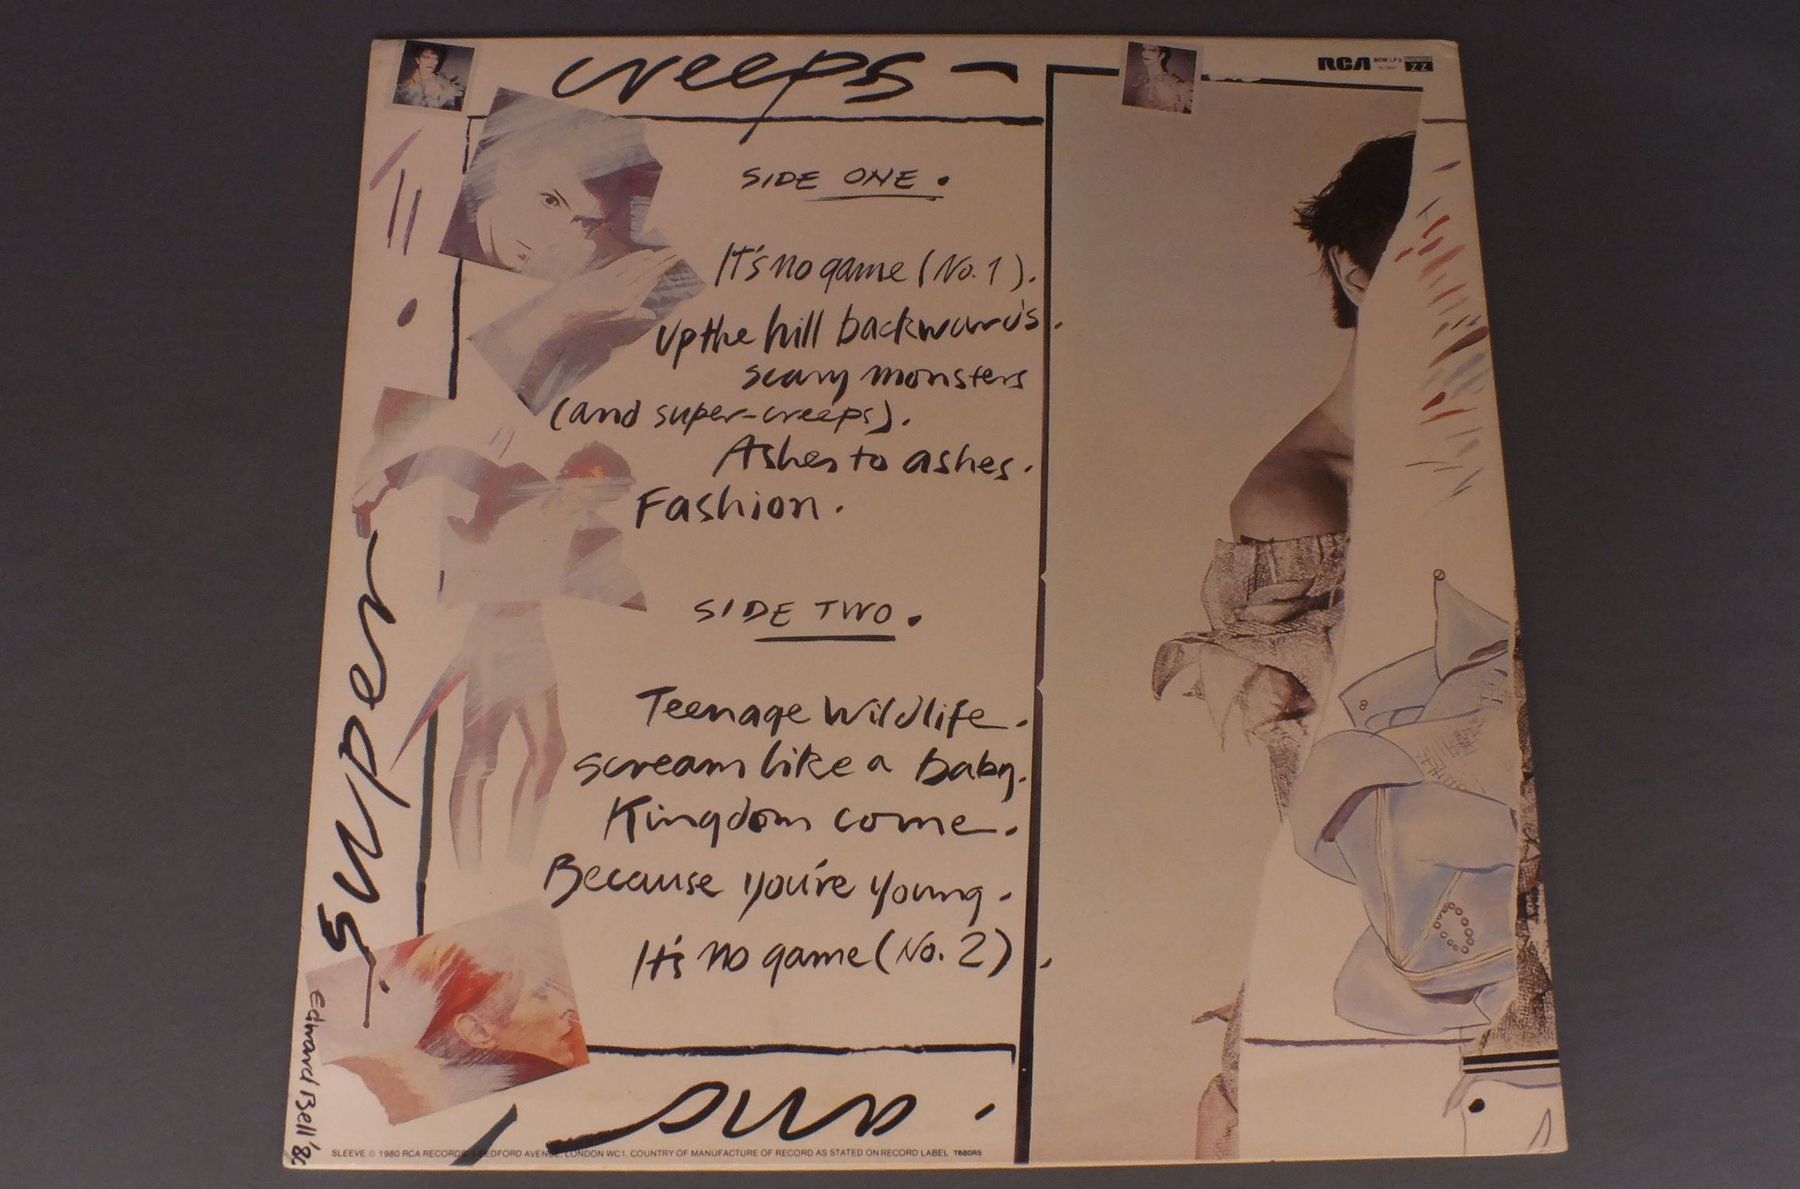 creeps -
RCA BOW LP 2
ZZ
SIDE ONE.
It's no game (No. 1).
Up the hill backwards.
scary monsters
(and super-creeps).
Ashes to ashes.
Fashion.
SIDE TWO.
Teenage Wildlife.
scream like a baby.
Kingdom come.
Because you're young.
It's no game (No. 2).
super
and.
Edward Bell '80
SLEEVE © 1980 RCA RECORDS, BEDFORD AVENUE, LONDON WC1. COUNTRY OF MANUFACTURE OF RECORD AS STATED ON RECORD LABEL T680RS